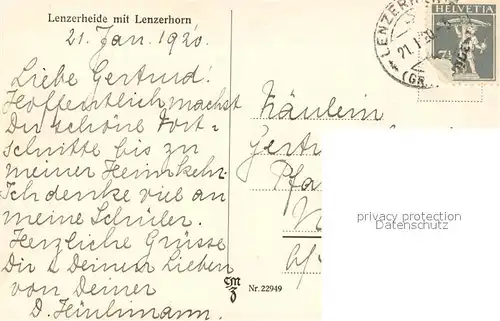 Lenzerheide mit Lenzerhorn
21. Jan. 1920.
Liebe Gertrud!
Hoffentlich machst
Du schöne Fort-
schritte bis zu
meiner Heimkehr.
Ich denke viel an
meine Schüler.
Herzliche Grüsse
Dir & Deinen Lieben
von Deiner
D. Hünlimann.
LENZERH
21.I.20
(GR
HELVETIA
7½
Fräulein
Gertr
Pfa
privacy protection
www.ansichtskartenversand.com
Nr. 22949